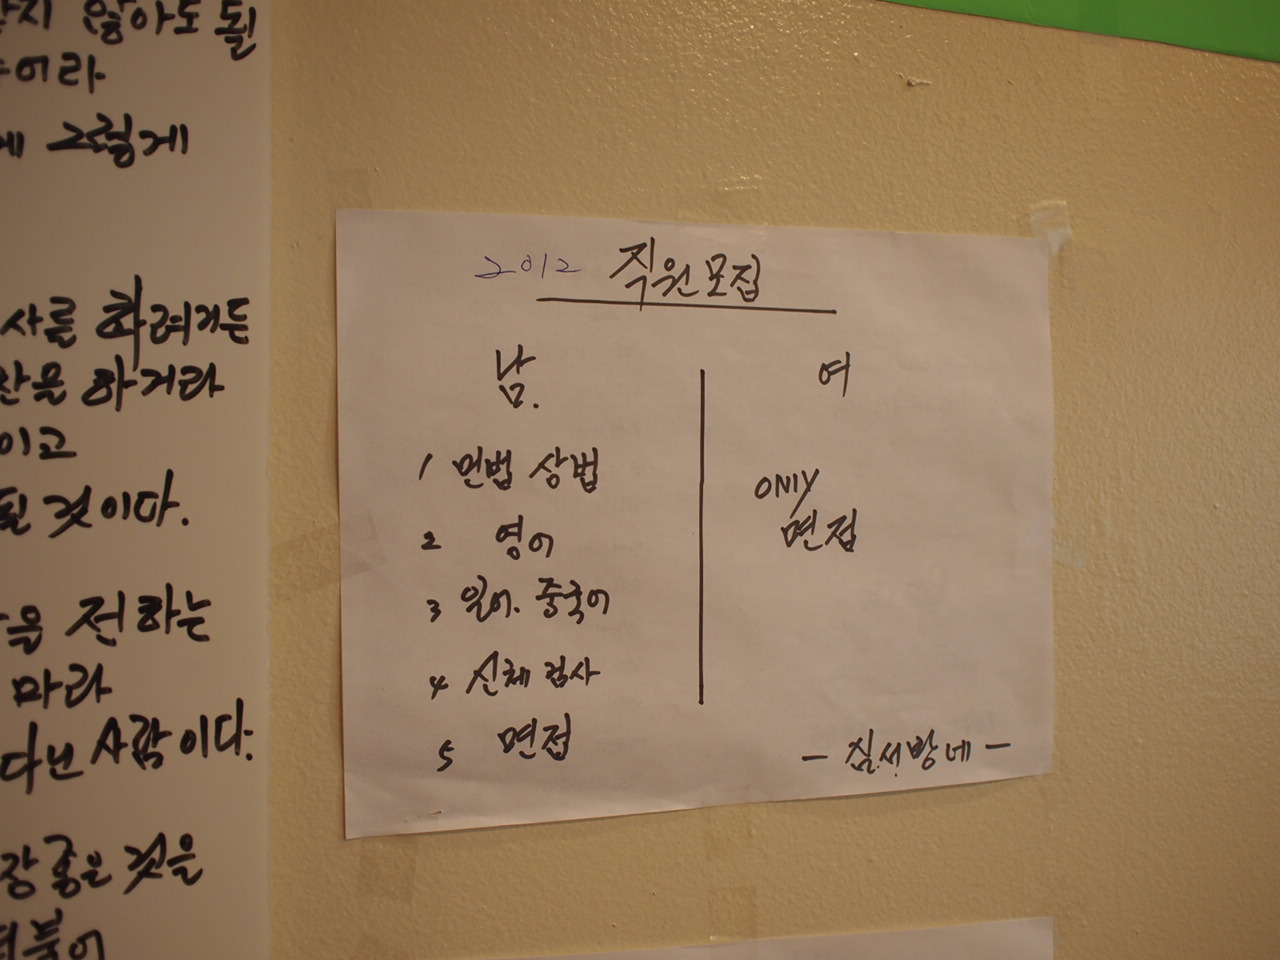 않아도 될
어라
그렇게
사를 하려거든
하거라
이고
될 것이다.
을 전하는
마라
다닌 사람이다.
장 좋은 것을
2012 직원모집
남.
1 민법 상법
2 영어
3 일어. 중국어
4 신체 검사
5 면접
여
ONLY
면접
- 심서방네 -